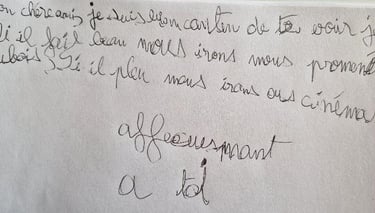 on chère amis je suis bien contên de te voir j
i il fait beau nous irons nous promen
ubois Si il pleu nous irans ous cinéma
affecuesmant
a toi